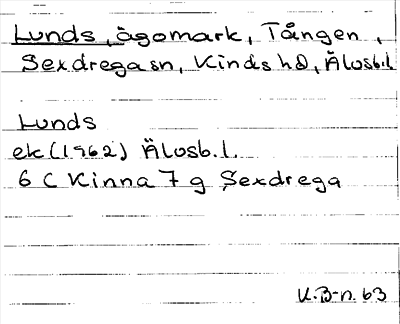 Lunds, ägomark, Tången,
Sexdrega sn, Kinds hd, Älvsb.l.
Lunds
ek (1962) Älvsb.l.
6 C Kinna 7 g Sexdrega
K.B-n. 63